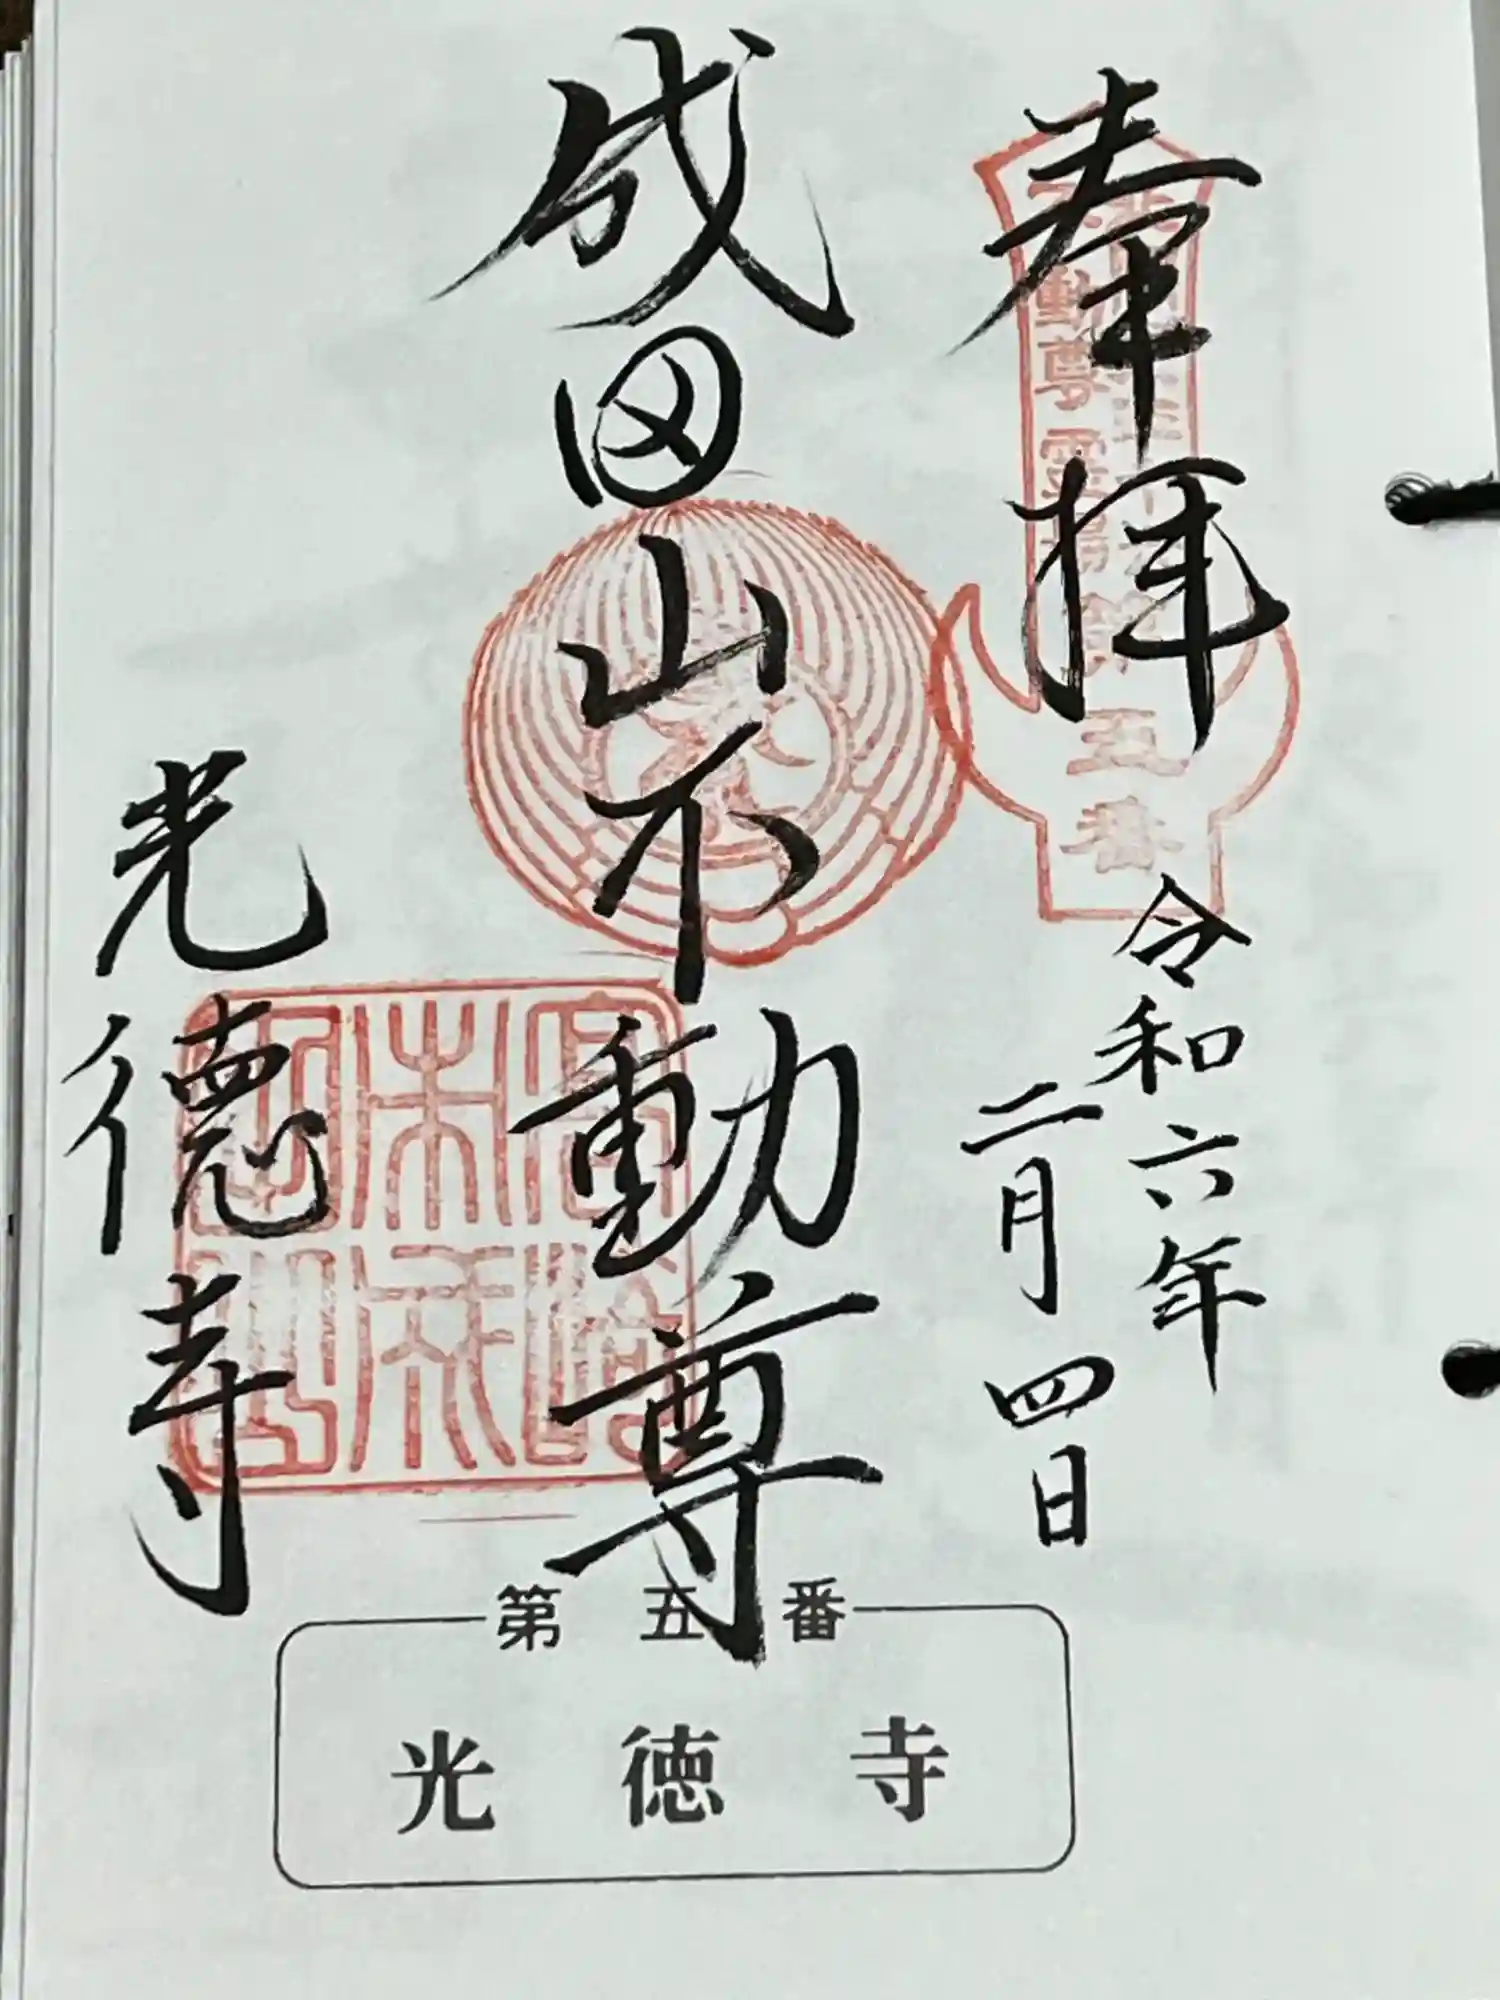 奉拝
令和六年
二月四日
成田山不動尊
光德寺
不動尊霊場
第五番
第五番
光徳寺